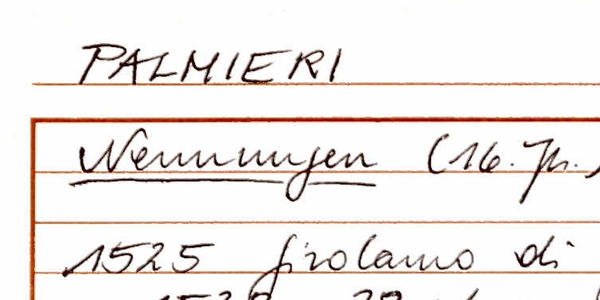 PALMIERI
Nennungen (16. Jh.)
1525 Girolamo di